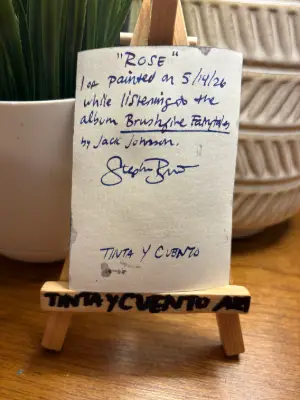 "ROSE"
1 of painted on 5/14/26
while listening to the
album Brushfire Fairytales
by Jack Johnson.
TINTA Y CUENTO
TINTA Y CUENTO